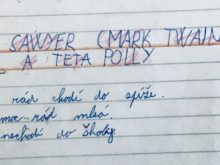 SAWYER (MARK TWAIN
A TETA POLLY
rád chodí do spíže.
moc rád mlsá.
nechodí do školy